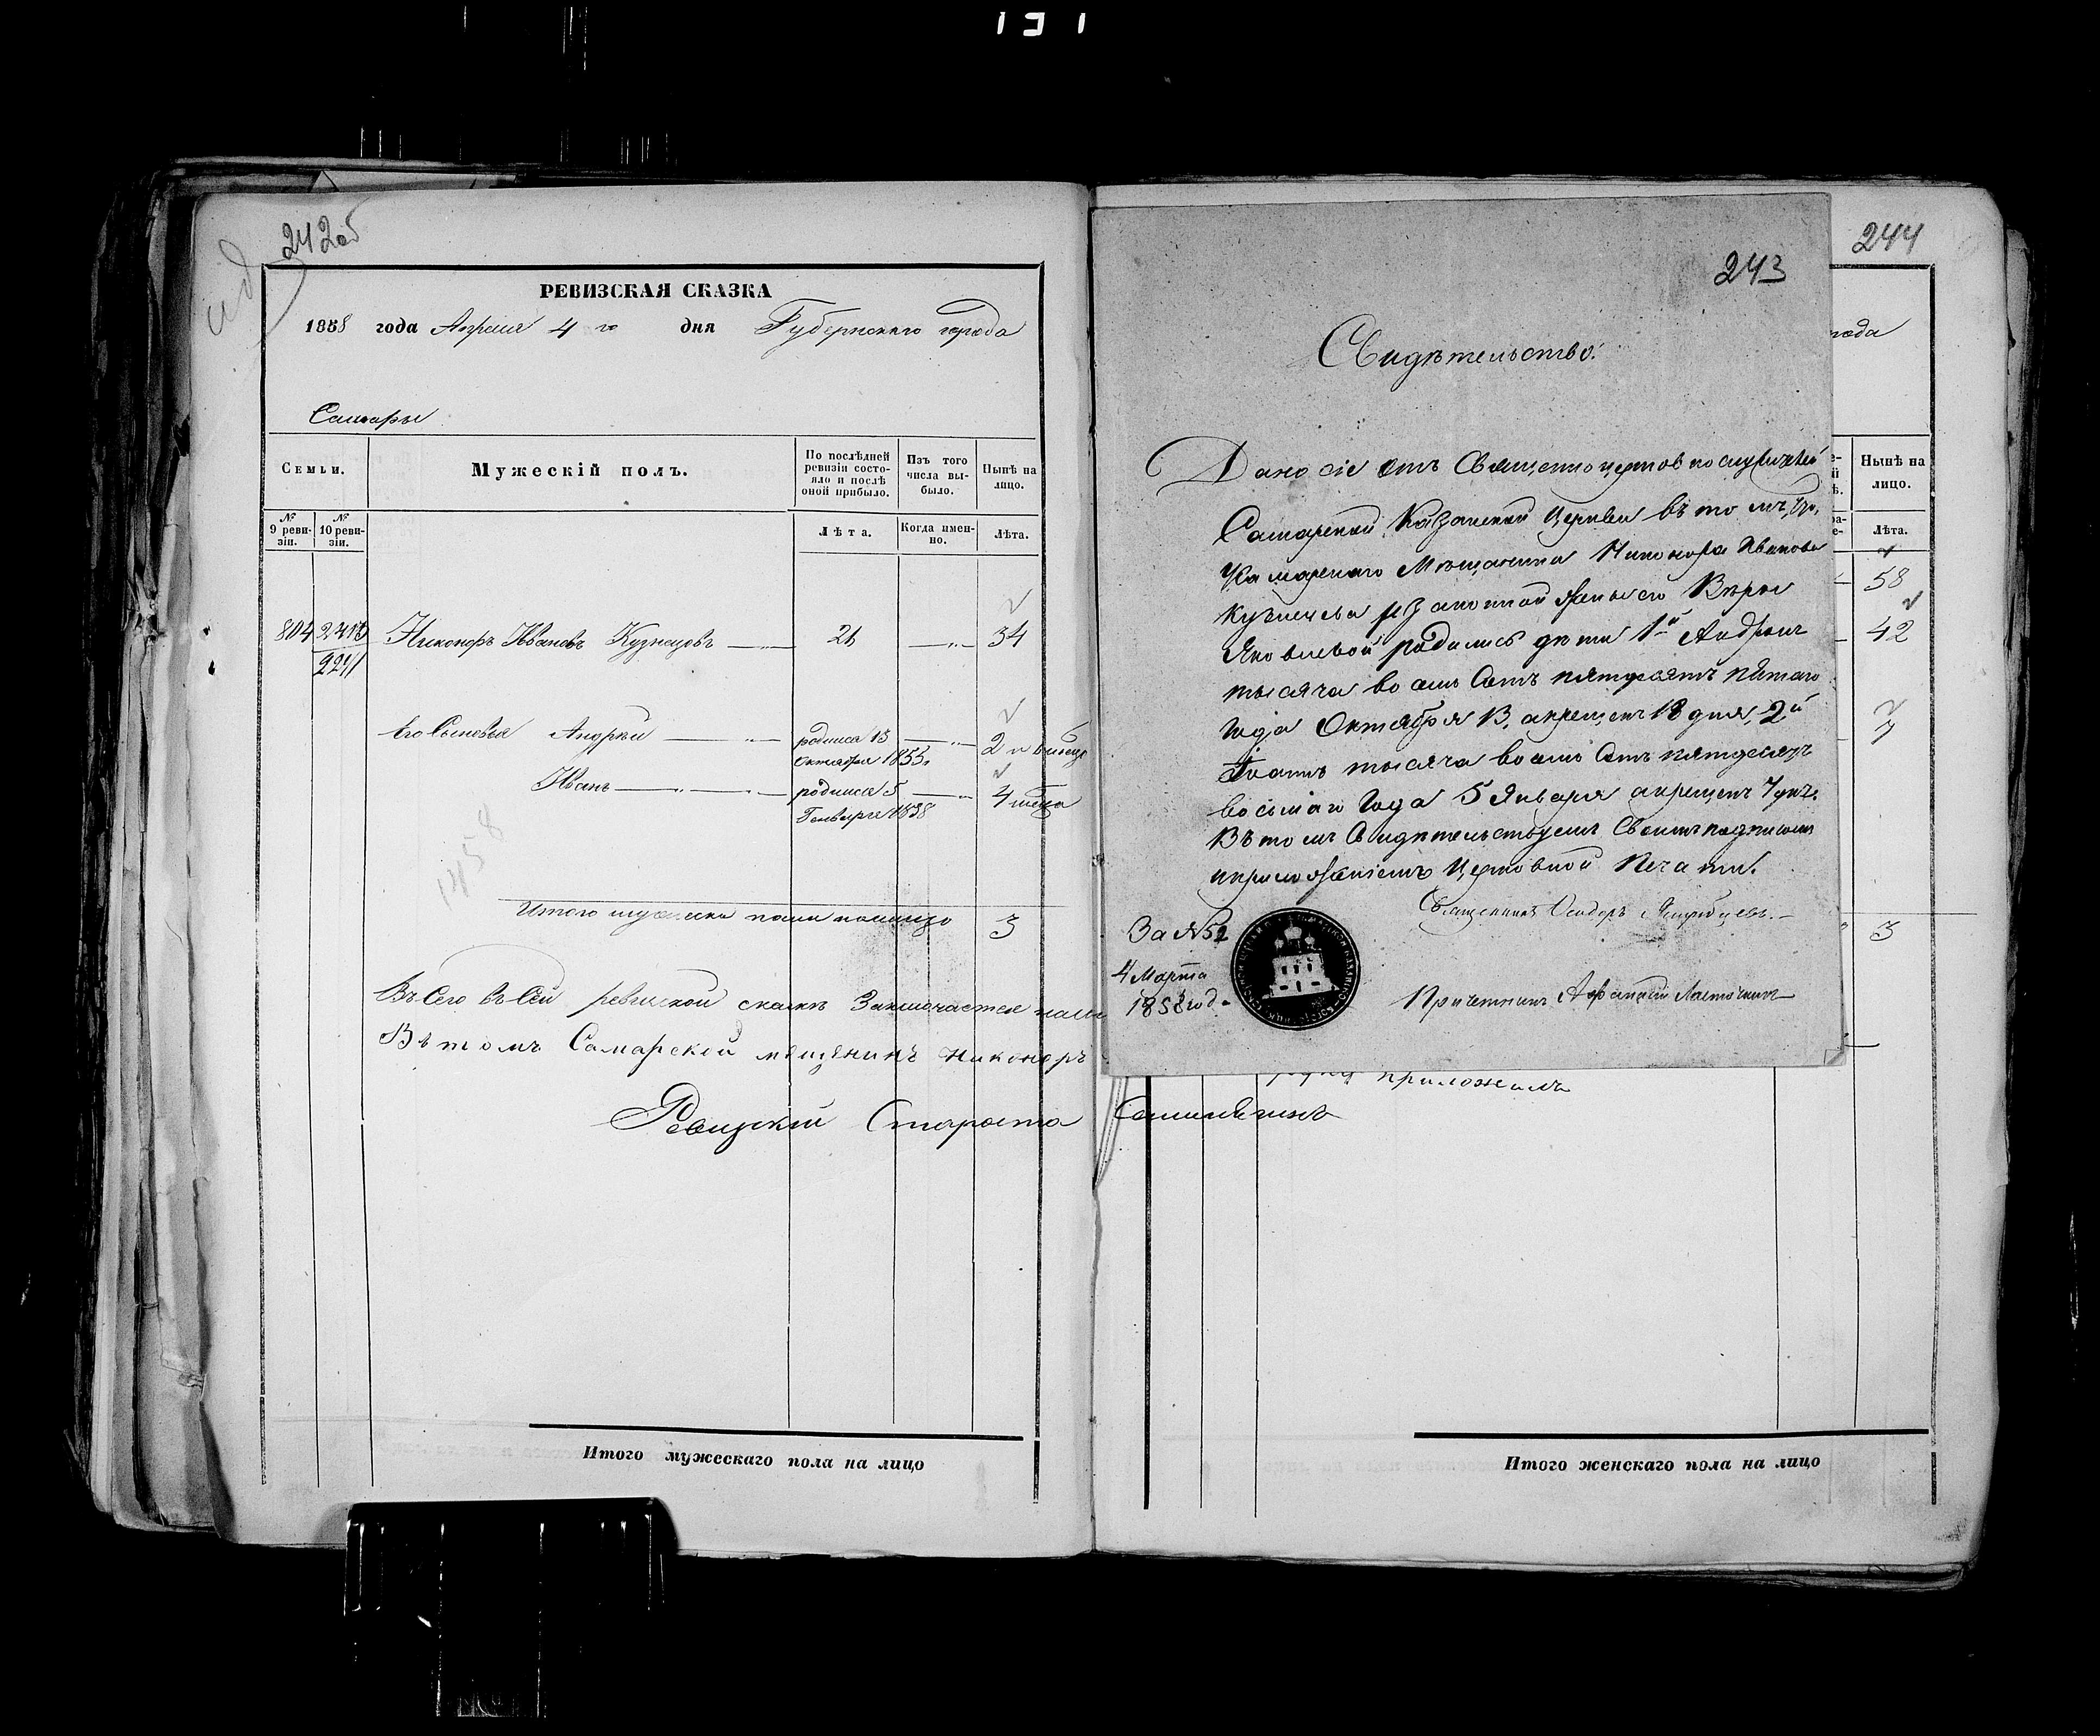 131
242об
РЕВИЗСКАЯ СКАЗКА
1858 года Апреля 4 го дня Губернскаго города
Самары
Семьи.
Мужескій полъ.
По послѣдней ревизіи состояло и послѣ оной прибыло.
Изъ того числа выбыло.
Нынѣ на лицо.
№ 9 ревизіи.
№ 10 ревизіи.
Лѣта.
Когда именно.
Лѣта.
804
2241
Никоноръ Ивановъ Кузнецовъ
34
Его Сыновья Андрей
родился 13
Октября 1855.
2
Иванъ
родился 5
Генваря 1858
4
1458
Итого мужеска пола налицо 3
Въ сей ревизской сказке Заключается
Въ томъ Самарской мещенинъ Никоноръ
Ревизкій Староста
Итого мужескаго пола на лицо
243
Свидѣтельство.
Дано сіе отъ Священноцерковнослужителей
Самарской Казанской Церкви въ томъ, что
Самарскаго Мѣщанина Никонора Иванова
Кузнецова и законной жены его Вѣры
Яковлевой родились дети 1й Андрей
тысяча восемь Сотъ пятдесятъ пятаго
Года Октября 13, а крещенъ 18 дня, 2й
Іоаннъ тысяча восемь Сотъ пятдесятъ
восьмаго Года 5 Января а крещенъ 7 дня.
Въ томъ Свидѣтельствуемъ Своимъ подписомъ
и приложеніемъ Церковной Печати.
Священникъ
За № 52
4 Марта
1858 год.
Причетникъ
244
Нынѣ на лицо.
Лѣта.
58
42
7
3
приложилъ
Итого женскаго пола на лицо